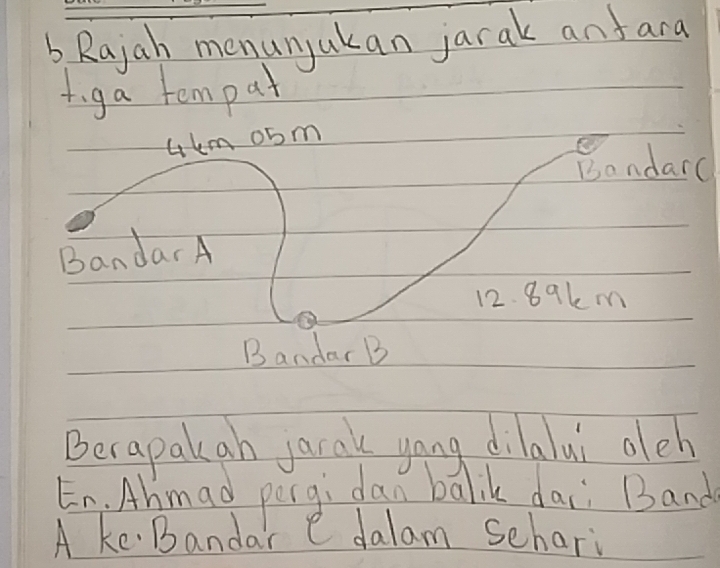 b Rajah menunjukan jarak antara
tiga tempat
4km 05m
Bandar C
Bandar A
12.89km
Bandar B
Berapakah jarak yang dilalui oleh
En. Ahmad pergi dan balik dari Banda
A ke Bandar C dalam Sehari